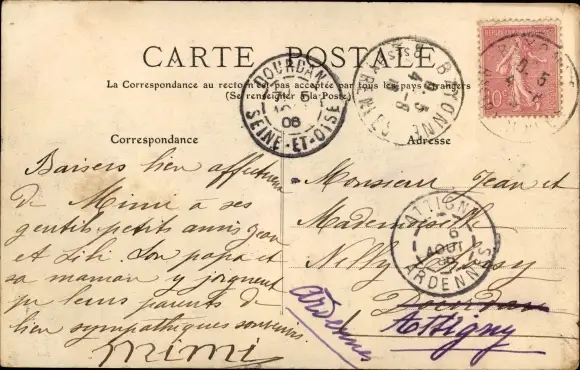 CARTE POSTALE
La Correspondance au recto n'est pas acceptée par tous les pays étrangers
(Se renseigner à la Poste)
Correspondance
Adresse
Baisers bien affectueux
de Mimi à ses
gentils petits amis Jean
et Lili. Son papa et
sa maman y joignent
pr leurs parents de
bien sympathiques souvenirs.
mimi
Monsieur Jean et
Mademoiselle
Nelly
Dourdan
Attigny
Ardennes
DOURDAN
5
AOUT
06
SEINE-ET-OISE
BAYONNE
ATTIGNY
6
AOUT
06
ARDENNES
10